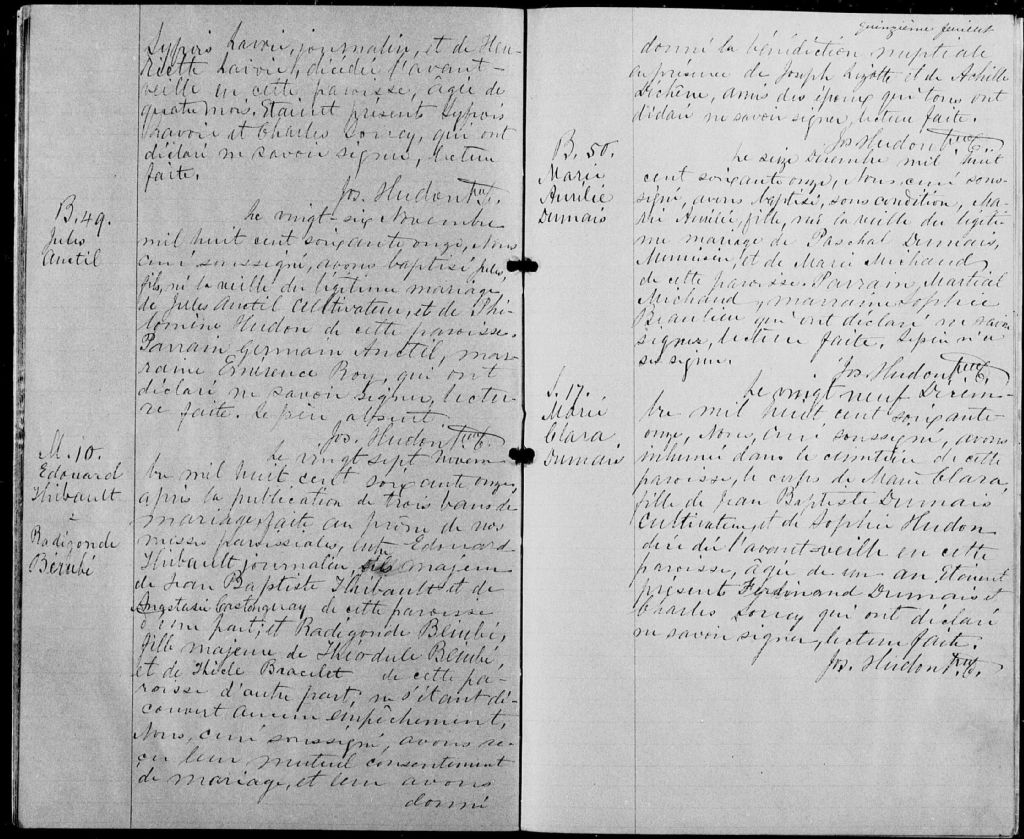 Lavoie, journalier, et de Hen-
riette Lavoie, décédé l'avant-
veille en cette paroisse, agée de
quatre mois. Etaient présents
Lavoie et Charles Sorrey, qui ont
déclaré ne savoir signer, lecture
faite.
Jos. Hudon Ptre
B. 49.
Jules
Anctil
Le vingt-six Novembre
mil huit cent soixante onze, Nous
curé soussigné, avons baptisé Jules,
fils, né la veille du légitime mariage
de Jules Anctil cultivateur, et de Phi-
lomène Hudon de cette paroisse.
Parrain Germain Anctil, mar-
raine Emérence Roy, qui ont
déclaré ne savoir signer, lectu-
re faite. Le père absent.
Jos. Hudon Ptre
M. 10.
Edouard
Thibault
&
Radégonde
Bérubé
Le vingt sept Novem
bre mil huit cent soixante onze,
après la publication de trois bans de
mariage, faite au prône de nos
messes paroissiales, entre Edouard
Thibault journalier, fils majeur
de Jean Baptiste Thibault et de
Angstasie Castonguay de cette paroisse
d'une part; et Radégonde Bérubé,
fille majeure de Théodule Bérubé,
et de Thècle Bracelet de cette pa-
roisse d'autre part, ne s'étant dé-
couvert aucun empêchement,
Nous, curé soussigné, avons re-
çu leur mutuel consentement
de mariage, et leur avons
donné
quinzième feuillet
donné la bénédiction nuptiale
en présence de Joseph Lizotte et de Achille
Dechêne, amis des époux qui tous ont
déclaré ne savoir signer, lecture faite.
Jos. Hudon Ptre
B. 50.
Marie
Aurélie
Dumais
Le seize Décembre mil huit
cent soixante onze, Nous curé sous-
signé, avons baptisé, sous condition, Ma-
rie Aurélie, fille, née la veille du légiti-
me mariage de Paschal Dumais,
Menuisier, et de Marie Michaud
de cette paroisse. Parrain, Martial
Michaud, marraine Sophie
Beaulieu qui ont déclaré ne savoir
signer, lecture faite. Le père n'a
su signer.
Jos. Hudon Ptre
S. 17.
Marie
Clara
Dumais
Le vingt neuf Décem-
bre mil huit cent soixante
onze, Nous, curé soussigné, avons
inhumé dans le cimetière de cette
paroisse, le corps de Marie Clara,
fille de Jean Baptiste Dumais
cultivateur, et de Sophie Hudon
décédée l'avant-veille en cette
paroisse, agée de un an. Etaient
présents Ferdinand Dumais et
Charles Sorrey qui ont déclaré
ne savoir signer, lecture faite.
Jos. Hudon Ptre